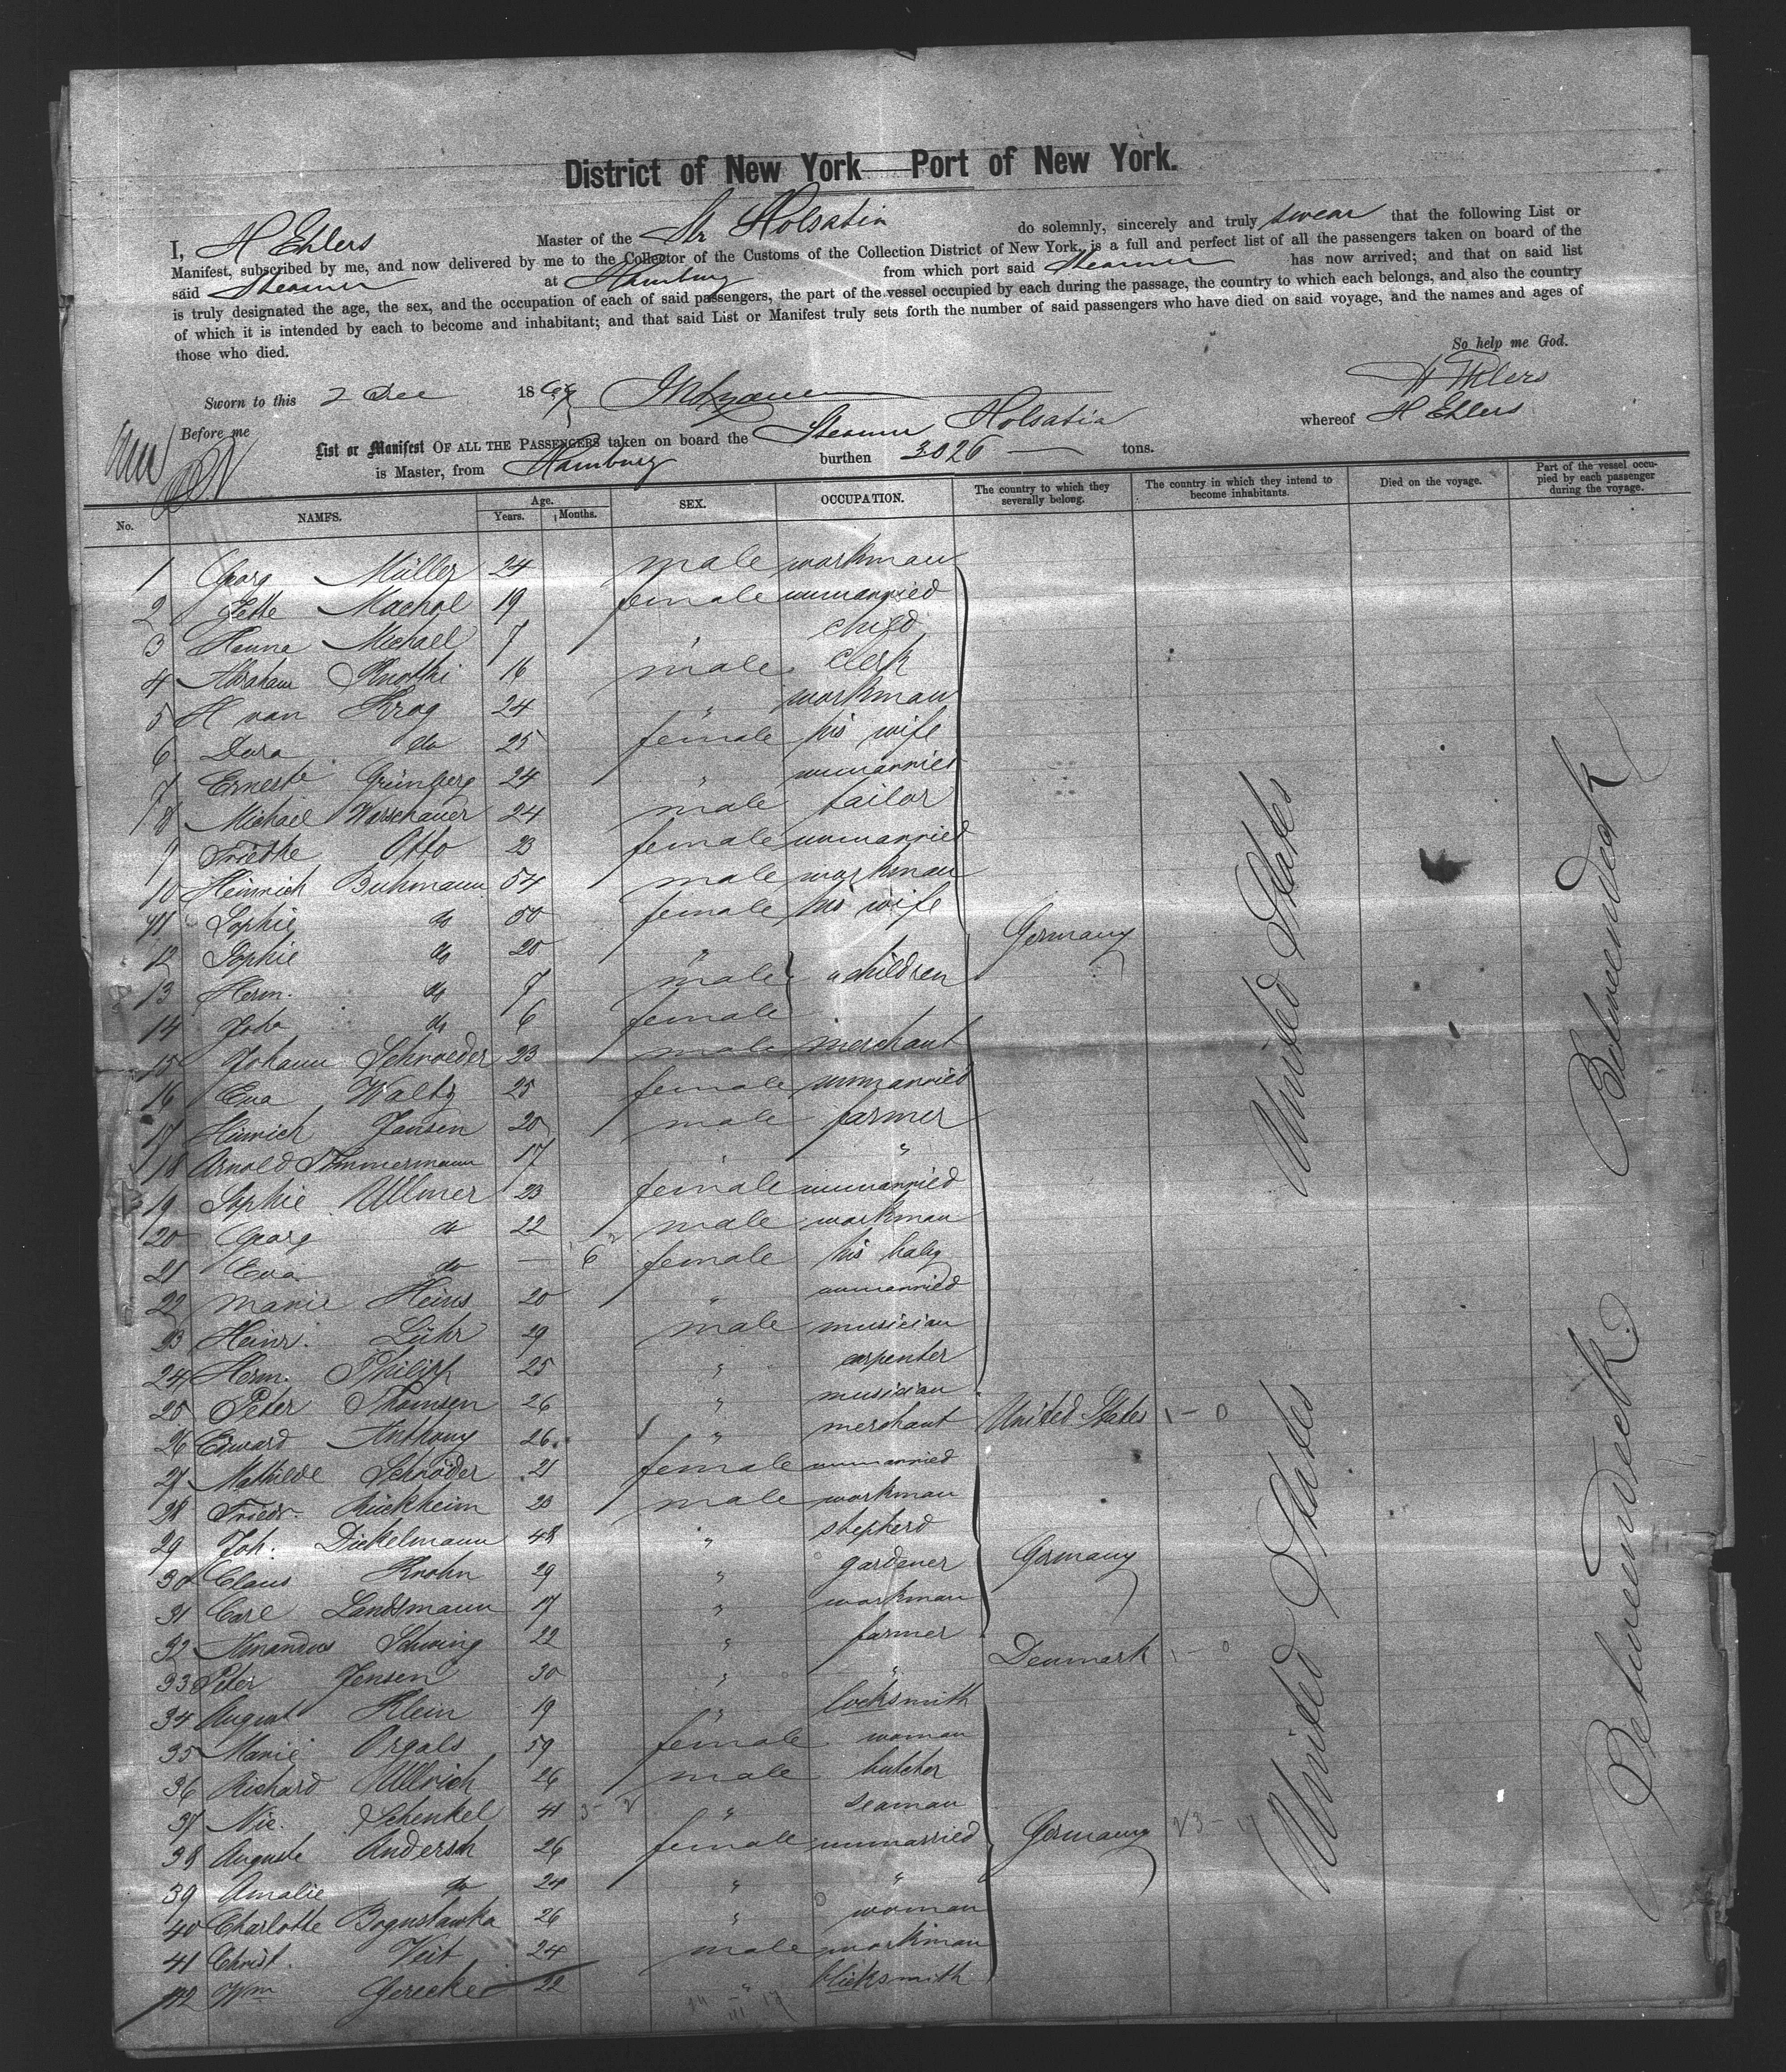 District of New York Port of New York.
I, H Ehlers Master of the Str Holsatia do solemnly, sincerely and truly swear that the following List or
Manifest, subscribed by me, and now delivered by me to the Collector of the Customs of the Collection District of New York, is a full and perfect list of all the passengers taken on board of the
said Steamer at Hamburg from which port said Steamer has now arrived; and that on said list
is truly designated the age, the sex, and the occupation of each of said passengers, the part of the vessel occupied by each during the passage, the country to which each belongs, and also the country
of which it is intended by each to become and inhabitant; and that said List or Manifest truly sets forth the number of said passengers who have died on said voyage, and the names and ages of
those who died.
So help me God.
H Ehlers
Sworn to this 2 Dec 18
Before me
List or Manifest OF ALL THE PASSENGERS taken on board the Steamer Holsatia whereof H Ehlers
is Master, from Hamburg burthen 3026 tons.
No. NAMES. Age. Years. Months. SEX. OCCUPATION. The country to which they severally belong. The country in which they intend to become inhabitants. Died on the voyage. Part of the vessel occupied by each passenger during the voyage.
1 Georg Müller 24 male workman
2 Jette Machol 19 female unmarried
3 Hanne Michael 7 " child
4 Abraham Knothi 16 male clerk
5 H van Krog 24 " workman
6 Dora do 25 female his wife
7 Erneste Grünberg 24 " unmarried
8 Michael Warschauer 24 male tailor
9 Friedke Otto 23 female unmarried
10 Heinrich Buhmann 54 male workman
11 Sophie do 50 female his wife
12 Sophie do 20 "
13 Herm. do 7 male " children
14 Joha do 6 female
15 Johann Schroeder 23 male merchant
16 Eva Waltz 25 female unmarried
17 Hinrich Jansen 20 male farmer
18 Arnold Timmermann 17 " "
19 Sophie Ullmer 23 female unmarried
20 Georg do 22 male workman
21 Eva do — 6 female his baby
22 Marie Heins 20 " unmarried
23 Heinr. Lühr 29 male musician
24 Herm. Philipp 25 " carpenter
25 Peter Thomsen 26 " musician
26 Edward Anthony 26 " merchant United States 1 - 0
27 Mathilde Schröder 21 female unmarried
28 Friedr. Rückheim 23 male workman
29 Joh. Dickelmann 48 " shepherd
30 Claus Krohn 29 " gardener
31 Carl Landsmann 17 " workman
32 Amandus Schwing 22 " farmer
33 Peter Jensen 30 " " Denmark 1 - 0
34 August Klein 19 " locksmith
35 Marie Orgals 59 female woman
36 Richard Ullrich 26 male butcher
37 Nic. Schenkel 41 " seaman
38 Auguste Andersch 26 female unmarried
39 Amalie do 24 " "
40 Charlotte Boguslawka 26 " woman
41 Christ. Veit 24 male workman
42 Wm Gerecke 22 " blicksmith
Germany
Germany
Germany
United States
United States
Betweendeck
Betweendeck